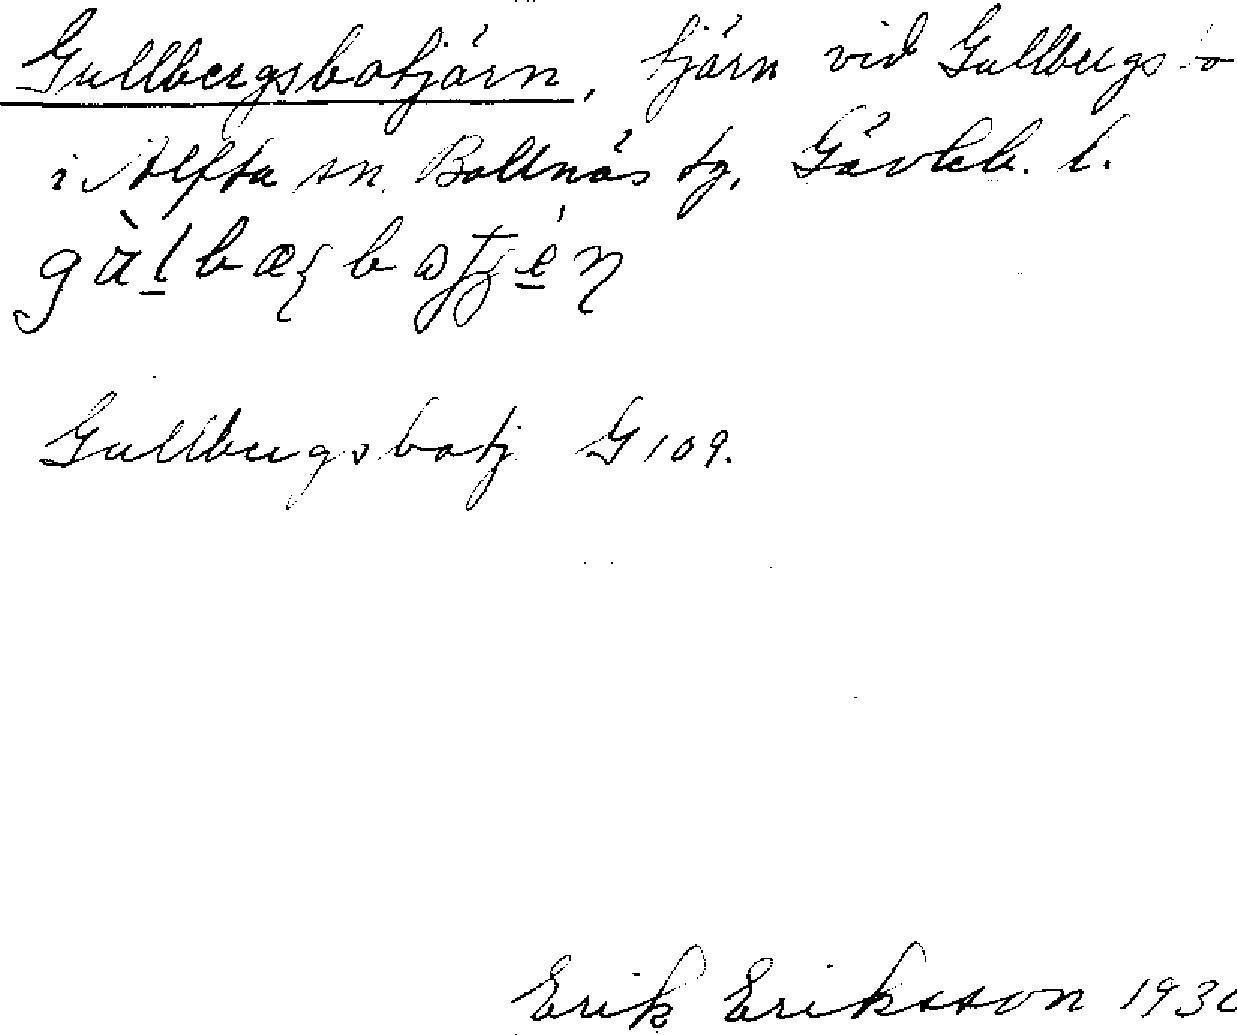 Gullbergsbotjärn, tjärn vid Gullbergsbo
i Alfta sn. Bollnäs tg. Gävleb. l.
Gullbergsbotj G 109.
Erik Eriksson